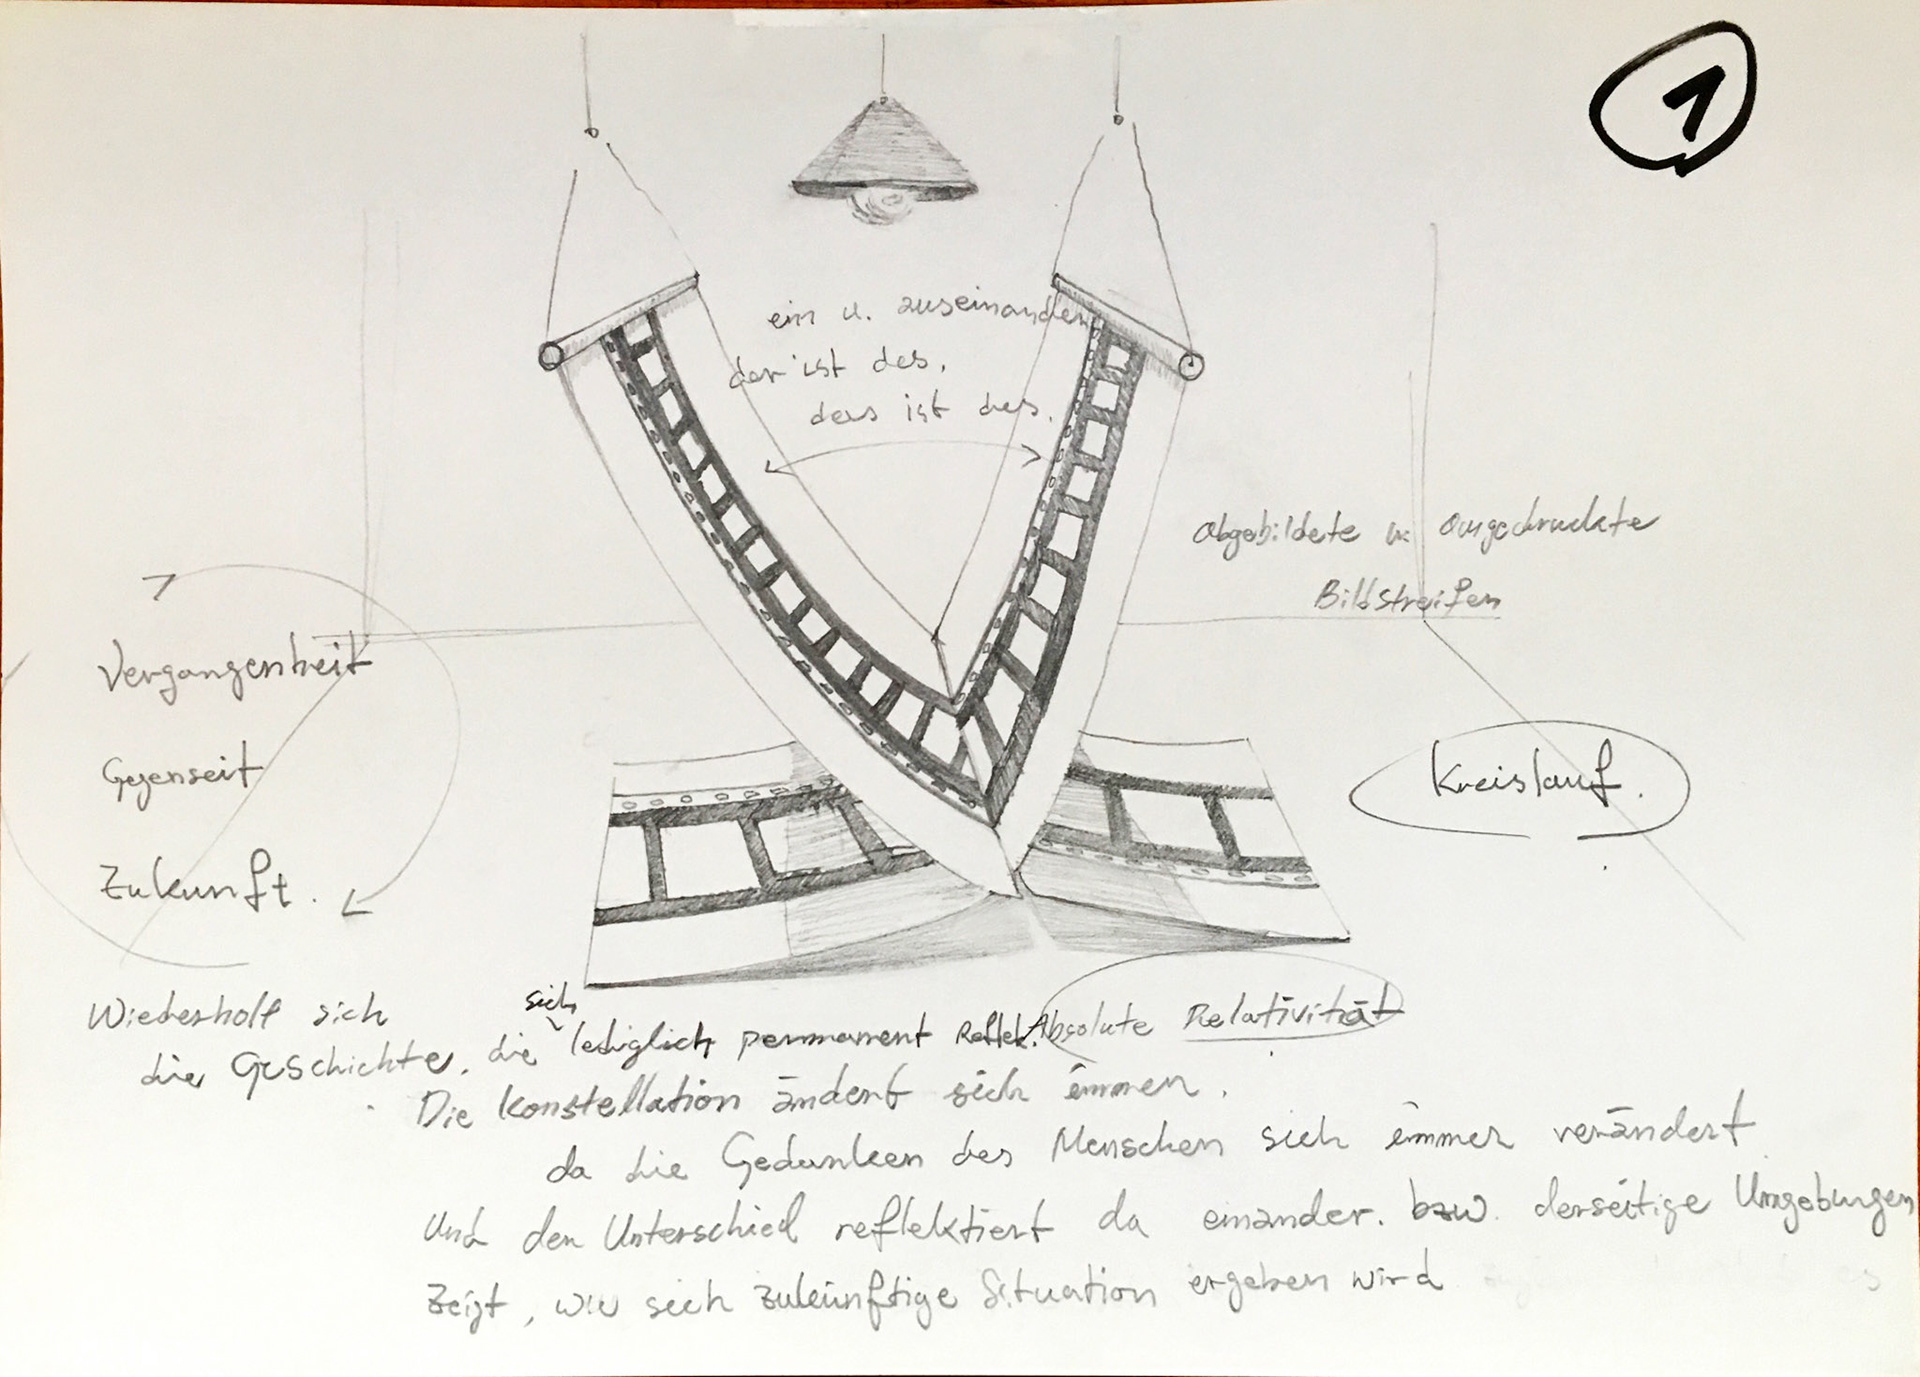 1
ein u. auseinander
der ist des.
das ist des.
Abgebildete u. ausgedruckte
Bildstreifen
Vergangenheit
Gegenseit
Zukunft.
Kreislauf.
Absolute Relativität
Wiederholt sich
die Geschichte, die sich lediglich permanent Reflek.
Die Konstellation ändert sich immer.
da die Gedanken des Menschen sich immer verändert
Und den Unterschied reflektiert da einander. bzw. derseitige Umgebungen
zeigt, wie sich zukünftige Situation ergeben wird